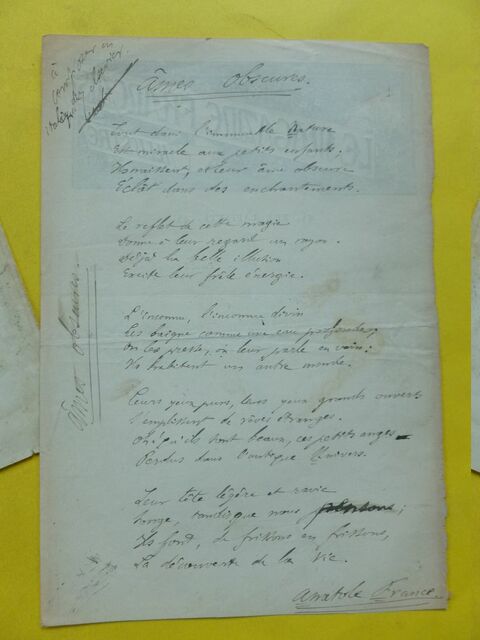 à
Âmes obscures.
Tout dans l'immuable Nature
Est miracle aux petits enfants;
Ils naissent, et leur âme obscure
Éclôt dans des enchantements.
Le reflet de cette magie
Donne à leur regard un rayon.
Déjà la belle illusion
Excite leur frêle énergie.
L'inconnu, l'inconnu divin
Les baigne comme une eau profonde;
On les presse, on leur parle en vain:
Ils habitent un autre monde.
Leurs yeux purs, leurs yeux grands ouverts
S'emplissent de rêves étranges.
Oh! qu'ils sont beaux, ces petits anges
Perdus dans l'antique Univers.
Leur tête légère et ravie
Songe, tandis que nous pensons;
Ils font, de frissons en frissons,
La découverte de la Vie.
Anatole France.
Âmes obscures.